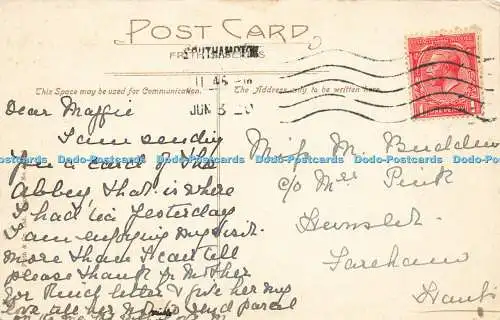 POST CARD
SOUTHAMPTON
11 45 AM
JUN 3 20
This Space may be used for Communication.
The Address only to be written here.
Dear Maffie
I am sending
you a card of the
Abbey that is where
I had tea yesterday
I am enjoying my visit
more than I can tell
please thank Mother
for kind letter & give her my
love tell her send parcel
Miss M. Budden
c/o Mrs Pink
Fareham
Hants
Dodo-Postcards Dodo-Postcards Dodo-Postcards Dodo-Postcards Dodo-Postcards Dodo-Postcards